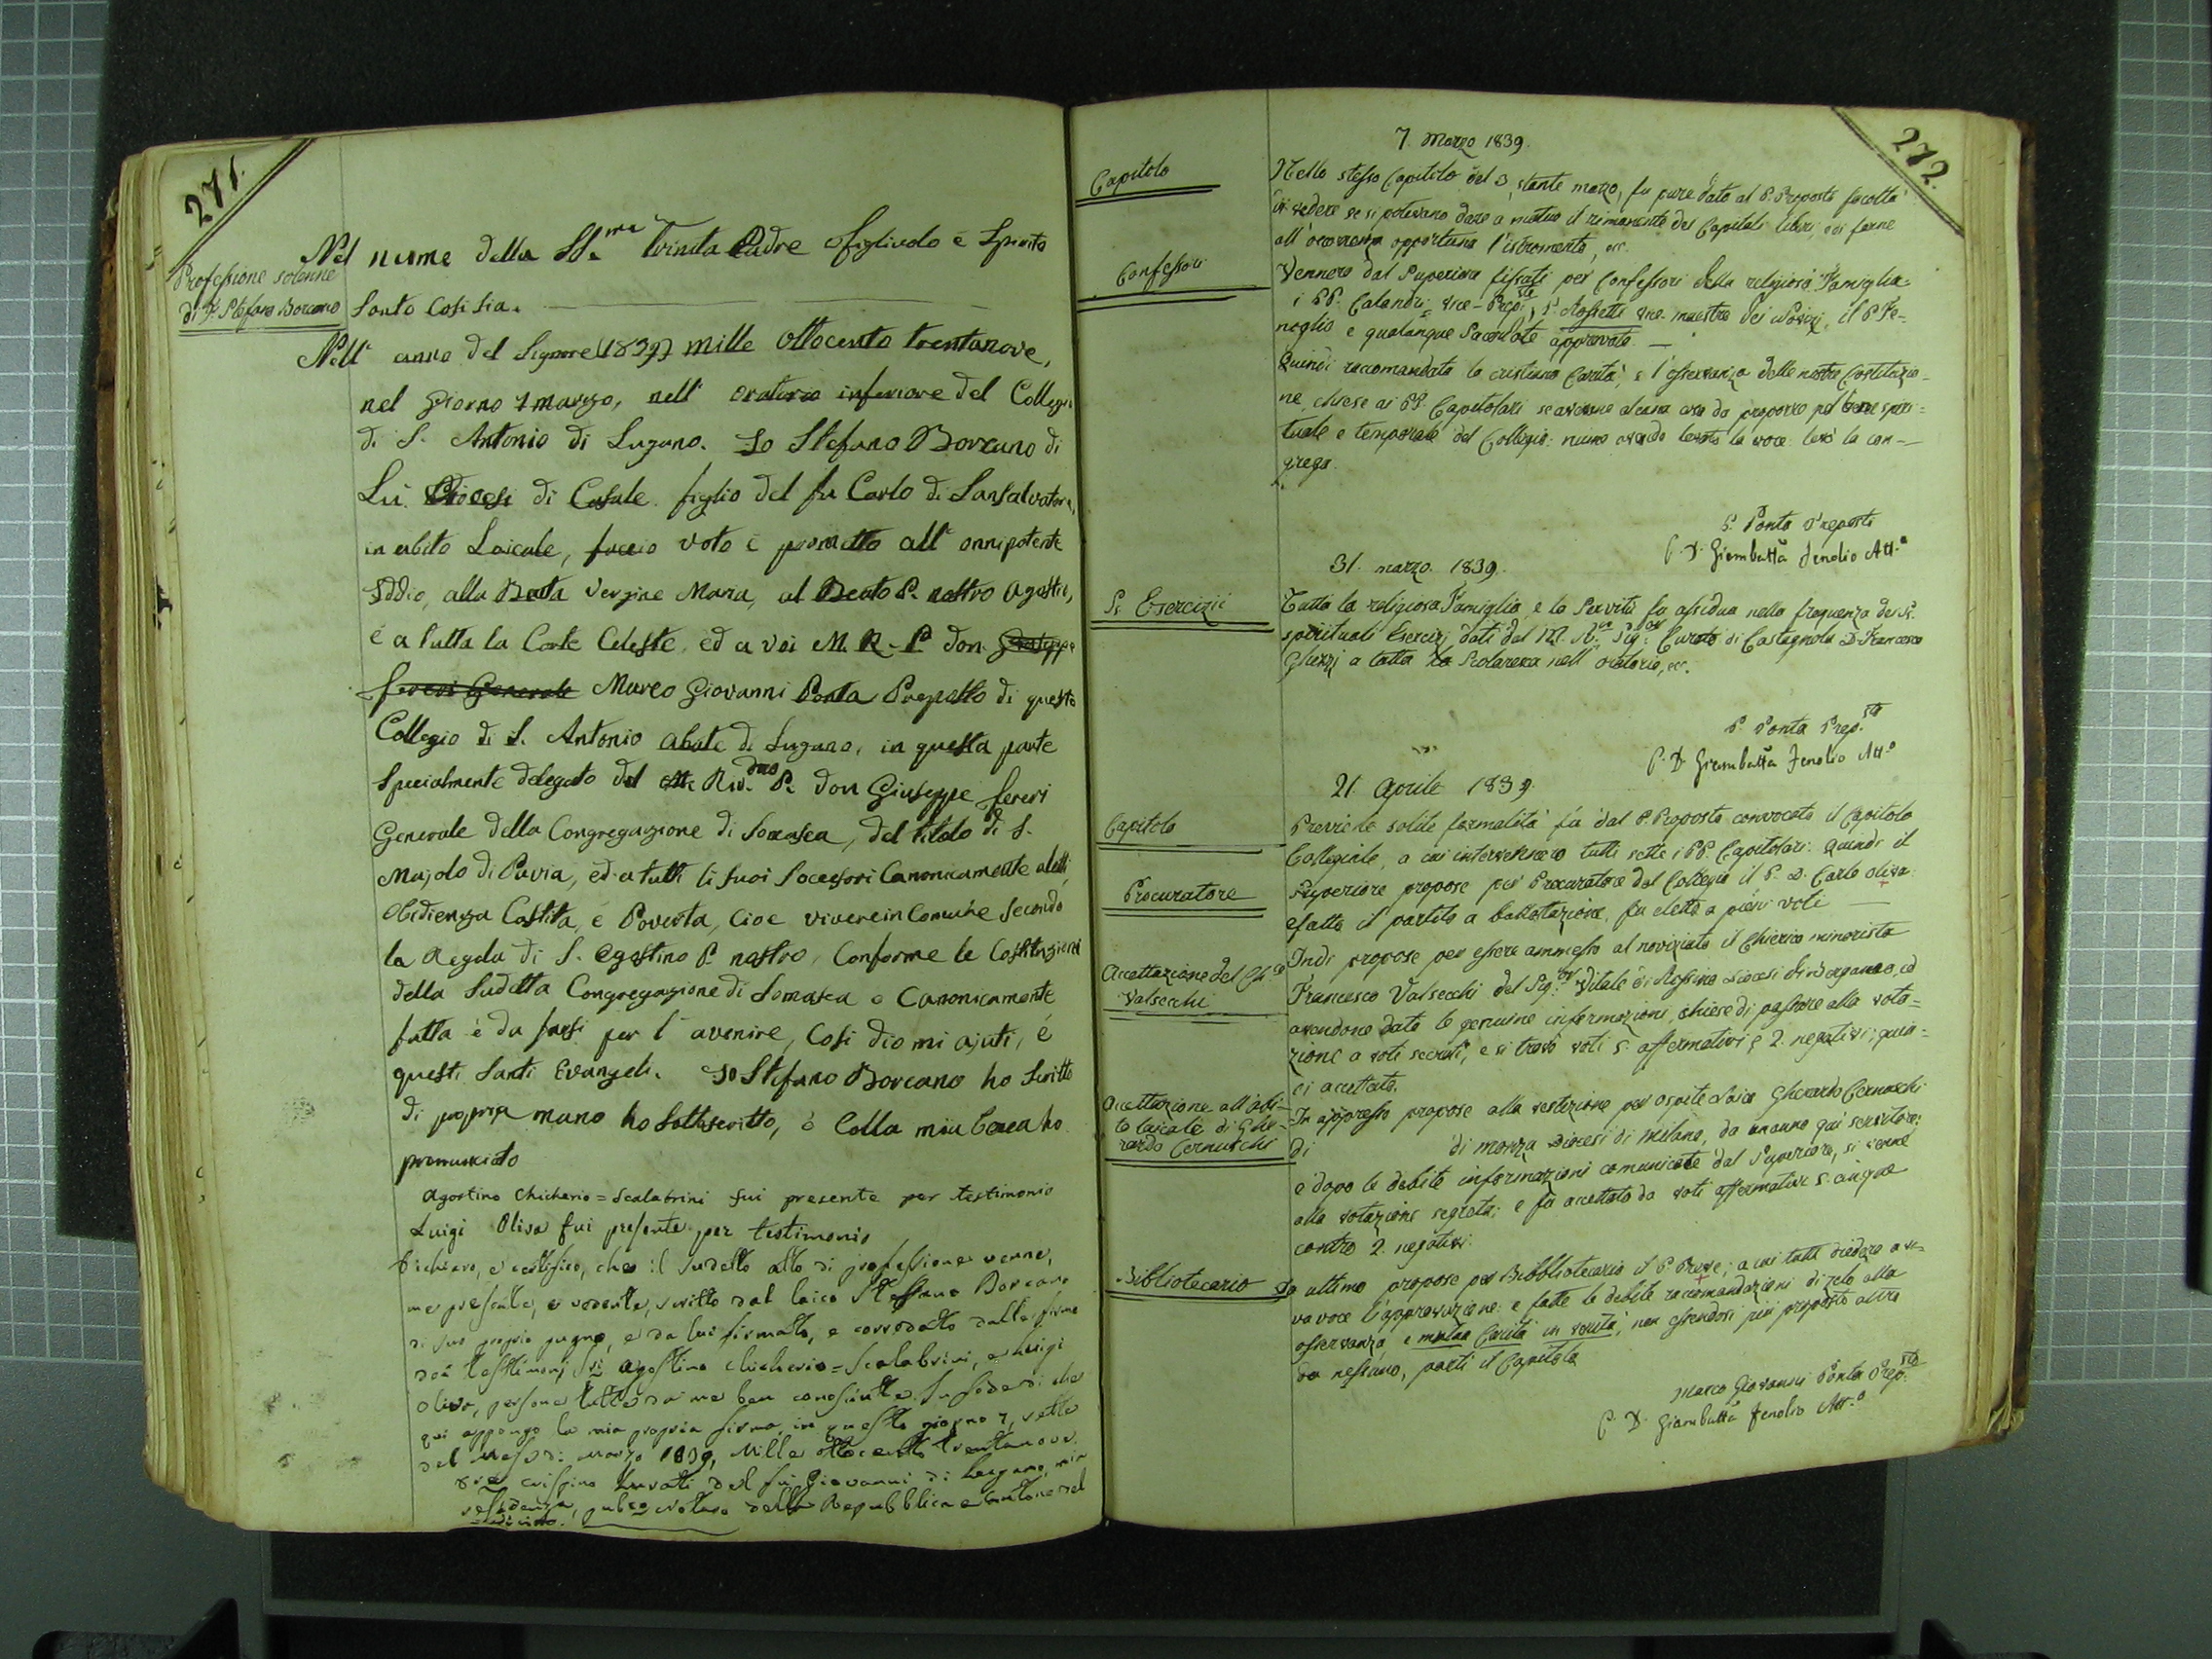 271.
Professione solenne
di F. Stefano Borcano
Nel nume della SS.ma Trinita Padre e figliuolo e Spirito
Santo Cosi sia.
Nell' anno del Signore (1839) mille ottocento trentanove,
nel giorno 7 marzo, nell' oratorio inferiore del Collegio
di S. Antonio di Lugano. Io Stefano Borcano di
Lù Diocesi di Casale figlio del fu Carlo di Sansalvatore,
in abito Laicale, faccio voto e prometto all' onnipotente
Iddio, alla Beata Vergine Maria, al Beato P. nostro Agostino,
é a tutta la Corte Celeste, ed a voi M. R. P. don Giuseppe
fereri Generale Marco Giovanni Ponta Preposto di questo
Collegio di S. Antonio abate di Lugano, in questa parte
Specialmente delegato del Rev.dmo P. don Giuseppe fereri
Generale della Congregazione di Somasca, del titolo di S.
Majolo di Pavia, ed a tutti li suoi Socessori Canonicamente eletti,
Obidienza Castita, é Poverta, cioe vivere in Comune secondo
la Regola di S. Agostino P. nostro, Conforme le Costituzioni
della Sudetta Congregazione di Somasca e Canonicamente
fatta é da farsi per l' avenire, Cosi dio mi ajuti, é
questi Santi Evangeli. Io Stefano Borcano ho Scritto
di propria mano ho Sottoscritto, é Colla mia bocca ho
pronunciato
Agostino Chicherio = Scalabrini fui presente per testimonio
Luigi Oliva fui presente per testimonio
Dichiaro, e certifico, che il sudetto atto di professione venne,
me presente, e vedente, scritto dal laico Steffano Borcano
di suo proprio pugno, e da lui firmato, e corredato dalle firme
dei testimonj Sri Agostino Chicherio = Scalabrini, e Luigi
Oliva, persone tutte da me ben conosciute. In fede di che
qui appongo la mia propria firma in questo giorno 7, sette
del mese di marzo 1839, Mille ottocento trentanove.
Crispino Lurati del fu Giovanni di Lugano, mia
residenza, pubco notaro della Repubblica e Cantone del
Ticino.
272.
7. Marzo 1839.
Capitolo
Nello stesso Capitolo del 3 stante marzo, fu pure dato al P. Preposto facoltà
di vedere se si potevano dare a mutuo il rimanente dei Capitali liberi, e di farne
all' occorrenza opportuna l'istromento, ec.
Confessori
Vennero dal Superiore fissati per Confessori della religiosa Famiglia
i PP. Calandri vice-Prepsto, P. Rossetti vice-maestro dei Novizj, il P. Fe-
noglio e qualunque Sacerdote approvato.
Quindi raccomandata la cristiana Carità, e l'osservanza delle nostre Costituzio-
ne, chiese ai PP. Capitolari se avenne alcuna cosa da proporre pel bene spiri-
tuale e temporale del Collegio: niuno avendo levato la voce levò la con-
grega.
P. Ponta Preposto
P. D. Giambatta Fenolio Att.o
31. marzo 1839.
Si Esercizii
Tutta la religiosa Famiglia e la Servitù fu assidua nella frequenza dei S.
spirituali Esercizj dati dal M. R.do Sig.or Curato di Castagnola D. Francesco
Ghezzi a tutta la Scolaresca nell' oratorio, ec.
P. Ponta Prep.sto
P. D. Giambatta Fenolio Att.o
21. Aprile 1839.
Capitolo
Previe le solite formalità fù dal P. Preposto convocato il Capitolo
Collegiale, a cui intervennero tutti sette i PP. Capitolari. Quindi il
Procuratore
Superiore propose per Procuratore del Collegio il P. D. Carlo Oliva
e fatto il partito a ballottazione, fu eletto a pieni voti
Accettazione del Ch.co
Valsecchi
Indi propose per essere ammesso al noviziato il Chierico minorista
Francesco Valsecchi del Sig.or Vitale di Rossino Diocesi di Bergamo, ed
avendone dato le genuine informazioni, chiese di passare alla vota-
zione a voti secreti, e si trovò voti 5. affermativi e 2. negativi; quin-
di accettato.
Accettazione all'abi-
to laicale di Ghe-
rardo Cernuschi
In appresso propose alla vestizione per ospite Laico Gherardo Cernuschi
di di monza Diocesi di Milano, da un anno quì servitore:
e dopo le debite informazioni comunicate dal Superiore, si venne
alla votazione segreta; e fu accettato da voti affermativi 5. cinque
contro 2. negativi.
Bibliotecario
Da ultimo propose per Bibbliotecario il P. Preve; a cui tutti diedero a vi-
va voce l'approvazione: e fatte le debite raccomandazioni di zelo alla
osservanza, e mutua Carità in verità, non essendosi più proposto altro
da nessuno, partì il Capitolo
Marco Giovanni Ponta Prep.sto
P. D. Giambatta Fenolio Att.o